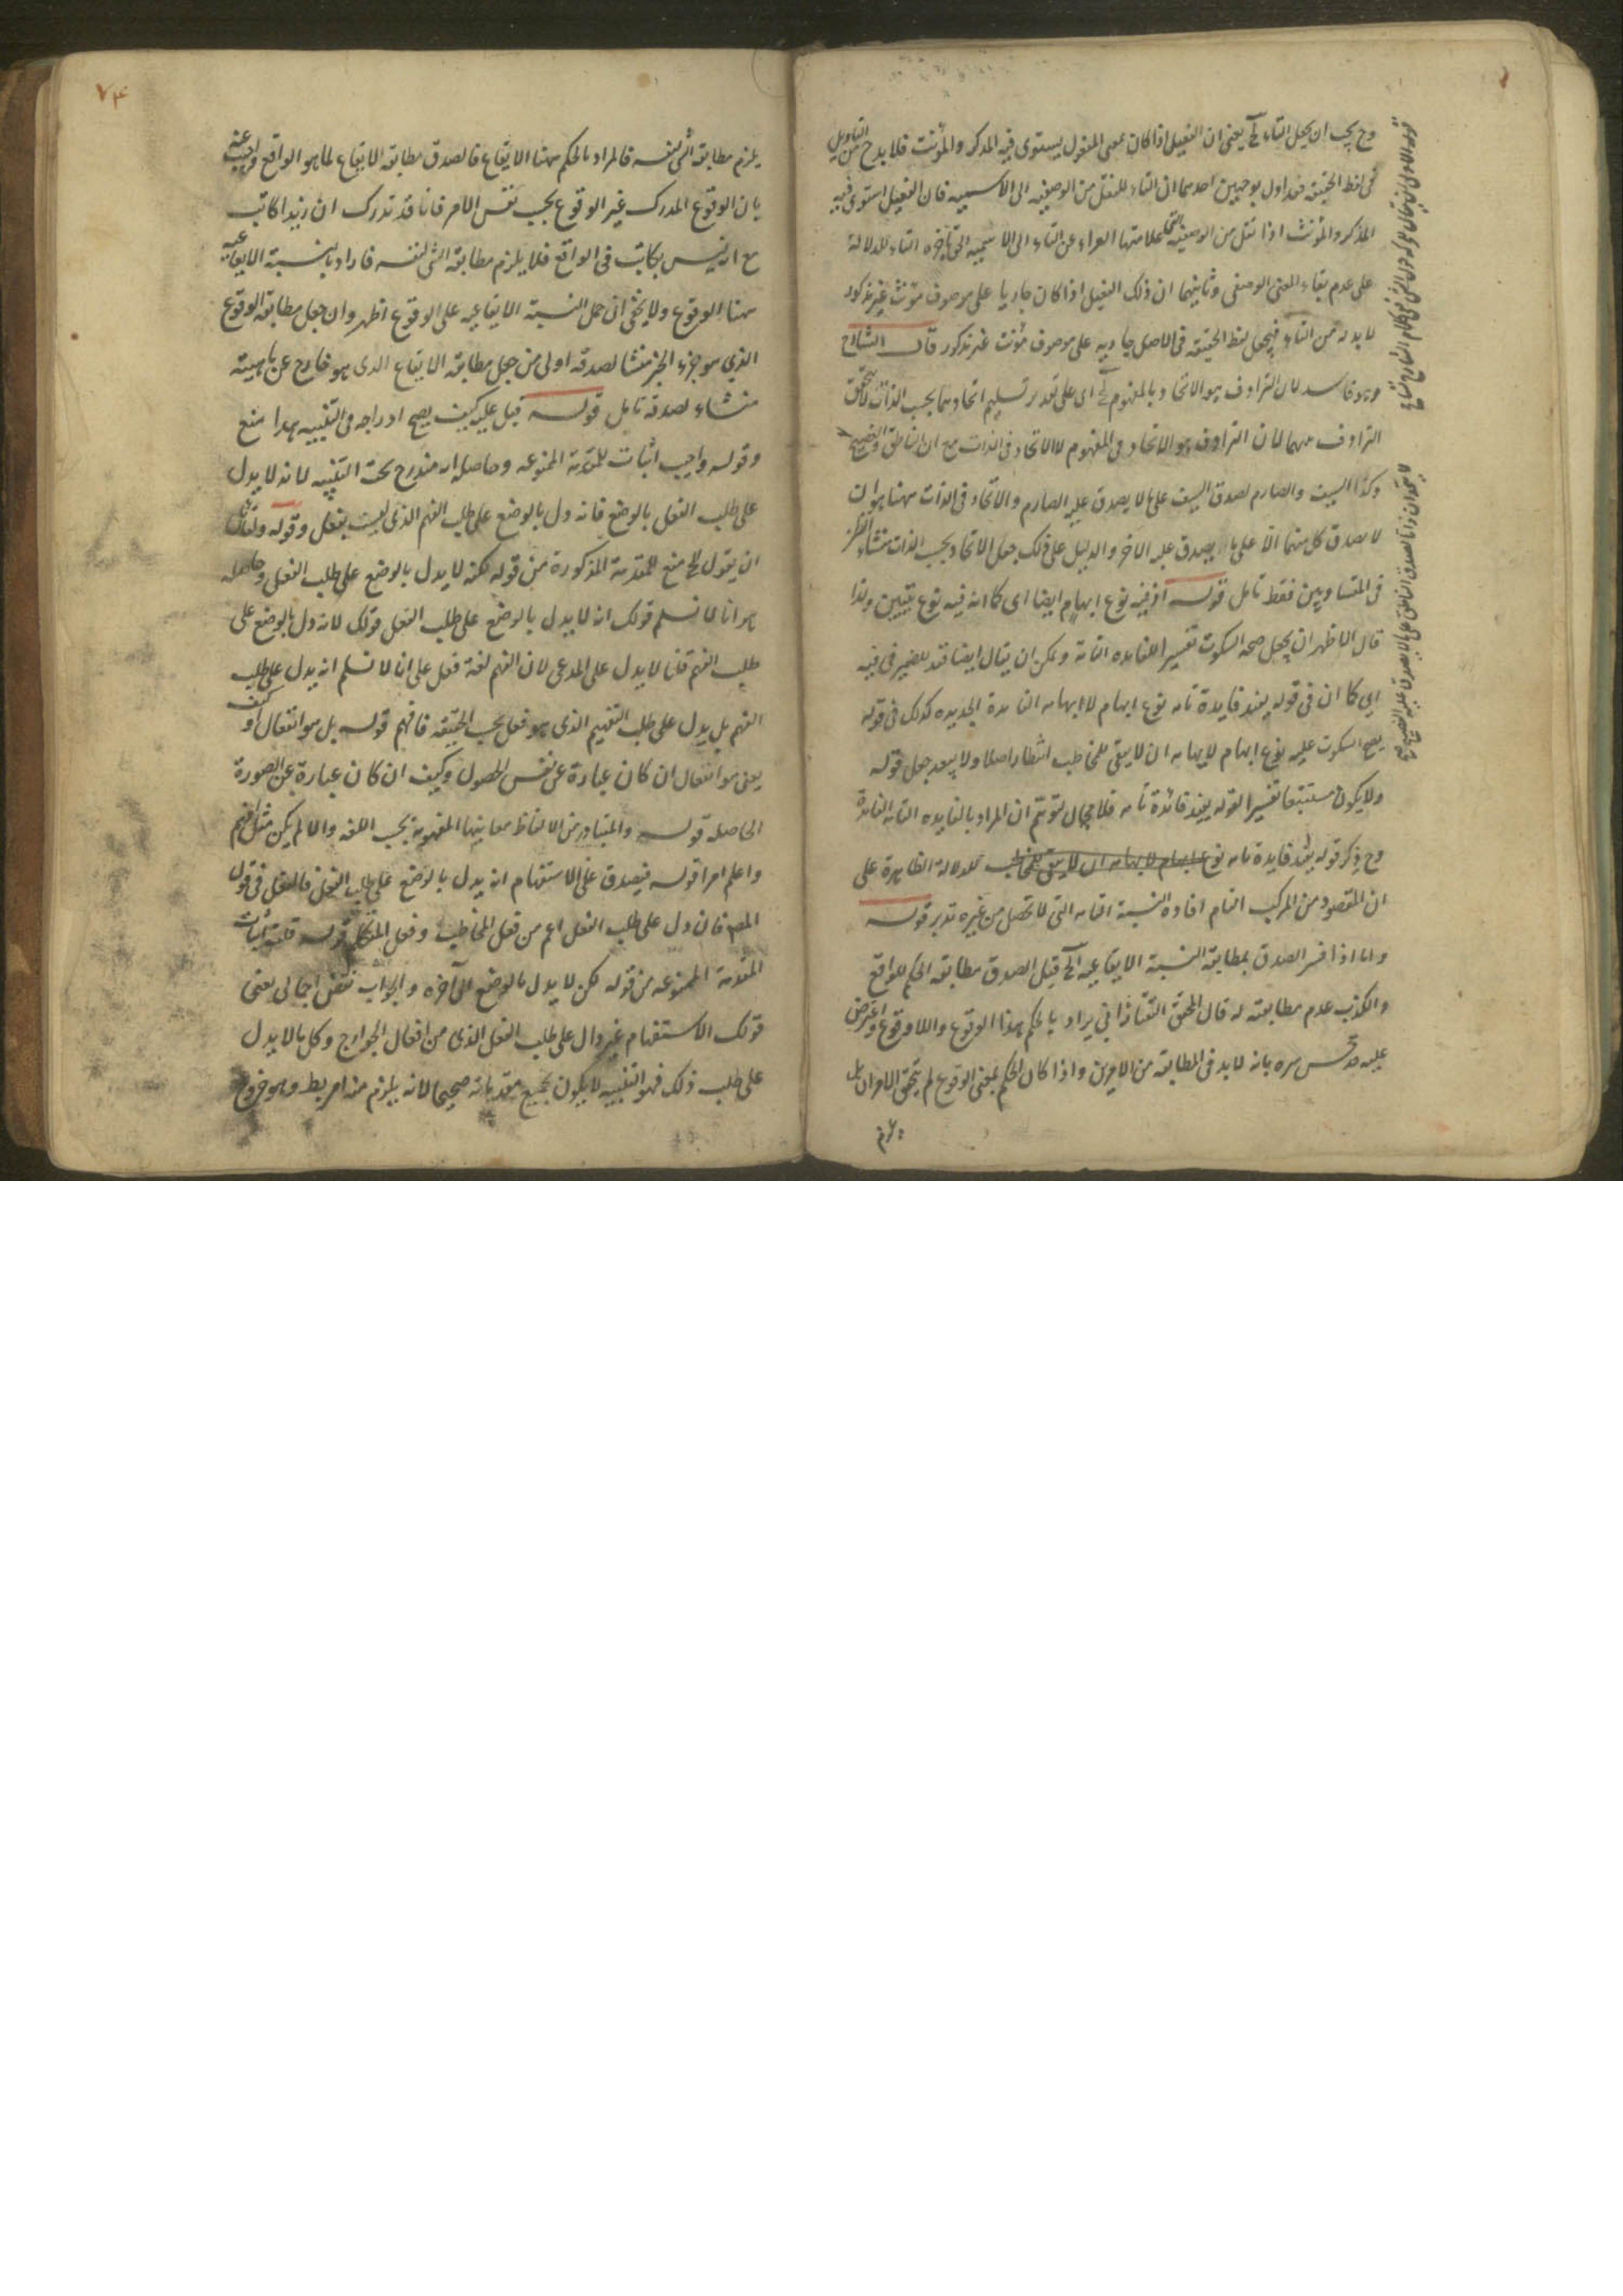 وح يجب ان يجعل التاء الخ يعنى ان الفعيل اذا كان بمعنى المفعول يستوى فيه المذكر والمؤنث فلا بد ح من التاويل
فى لفظ الحقيقة فيأول بوجهين احدهما ان التاء للنقل من الوصفيه الى الاسميه فان الفعيل استوى فيه
المذكر والمؤنث اذا نقل من الوصفية علامتها العراء عن التاء الى الاسميه الخ بآخره التاء للدلالة
على عدم بقاء المعنى الوصفى وثانيهما ان ذلك الفعيل اذا كان جاريا على موصوف مؤنث غير مذكور
لا بد له من التاء فيجعل لفظ الحقيقه فى الاصل جاريه على موصوف مؤنث غير مذكور قال الشارح
وهو فاسد لان الترادف هو الاتحاد بالمفهوم الخ اى على تقدير تسليم اتحادهما بحسب الذات لا يتحقق
الترادف بينهما لان الترادف هو الاتحاد فى المفهوم لا الاتحاد فى الذات مع ان الناطق والفصيح
وكذا السيف والصارم لصدق السيف على ما لا يصدق عليه الصارم والاتحاد فى الذات ههنا هو ان
لا يصدق كل منهما الا على ما يصدق عليه الاخر والدليل على ذلك جعل الاتحاد بحسب الذات منشاء للظن
فى المتساويين فقط تامل قوله اذ فيه نوع ابهام ايضا اى كما انه فيه نوع تبيين ولذا
قال الاظهر ان يجعل صحة السكوت تفسيرا للفايده التامة ويمكن ان يقال ايضا قيد للضمير فى فيه
اى كما ان فى قوله يفيد فايدة تامه نوع ابهام لابهامه الفايدة الجديده كذلك فى قوله
يصح السكوت عليه نوع ابهام لابهامه ان لا يبقى للمخاطب انتظار اصلا ولا يبعد جعل قوله
ولا يكون مستتبعا تفسيرا لقوله يفيد فائدة تامه فلا مجال لتوهم ان المراد بالفايده التامه الفائدة
وح ذكر قوله يفيد فايدة تامه نوع ابهام لابهامه ان لا يبقى للمخاطب للدلالة الظاهرة على
ان المقصود من المركب التام افادة النسبة التامه التى لا تحصل من غيره تدبر قوله
واما اذا فسر الصدق بمطابقة النسبة الايقاعيه الخ قيل الصدق مطابقه الحكم للواقع
والكذب عدم مطابقته له قال المحقق التفتازانى يراد بالحكم هذا الوقوع واللاوقوع واعترض
عليه قدس سره بانه لا بد فى المطابقه من الامرين واذا كان الحكم بمعنى الوقوع لم يتحقق الامران بل
يلزم
٧٤
يلزم مطابقة الشئ لنفسه فالمراد بالحكم ههنا الايقاع فالصدق مطابقه الايقاع لما هو الواقع واجيب عنه
بان الوقوع المدرك غير الوقوع بحسب نفس الامر فانا قد ندرك ان زيدا كاتب
مع انه ليس بكاتب فى الواقع فلا يلزم مطابقة الشئ لنفسه فاراد بالنسبة الايقاعيه
ههنا الوقوع ولا يخفى ان حمل النسبة الايقاعيه على الوقوع اظهر وان جعل مطابقة الوقوع
الذى هو جزء الخبر منشا لصدقه اولى من جعل مطابقه الايقاع الذى هو خارج عن ماهيته
منشاء لصدقه تامل قوله قيل عليه كيف يصح ادراجه فى التنبيه هذا منع
وقوله واجيب اثبات للمقدمة الممنوعه وحاصله انه مندرج تحت التنبيه لانه لا يدل
على طلب الفعل بالوضع فانه دل بالوضع على طلب الفهم الذى ليست بفعل وقوله ولقائل
ان يقول الخ منع للمقدمة المذكورة من قوله لكنه لا يدل بالوضع على طلب الفعل وحاصله
هو انا لا نسلم قولك انه لا يدل بالوضع على طلب الفعل قولك لانه دل بالوضع على
طلب الفهم قلنا لا يدل على المدعى لان الفهم لغة فعل على انا لا نسلم انه يدل على طلب
الفهم بل يدل على طلب التفهيم الذى هو فعل بحسب الحقيقه فافهم قوله بل هو انفعال او كيف
يعنى هو انفعال ان كان عبارة عن نفس الحصول وكيف ان كان عبارة عن الصورة
الحاصله قوله والمتبادر من الالفاظ معانيها المفهومة بحسب اللغه والا لم يكن مثل افهم
واعلم امرا قوله فيصدق على الاستفهام انه يدل بالوضع على طلب الفعل فالفعل فى قول
المص فان دل على طلب الفعل اعم من فعل المخاطب وفعل المتكلم قوله قلت اثبات
المقدمة الممنوعه من قوله لكن لا يدل بالوضع الى آخره والجواب نقض اجمالى يعنى
قولك الاستفهام غير دال على طلب الفعل الذى من افعال الجوارح وكل ما لا يدل
على طلب ذلك فهو التنبيه لا يكون بجميع مقدماته صحيحا لانه يلزم منه امر بط وهو خروج